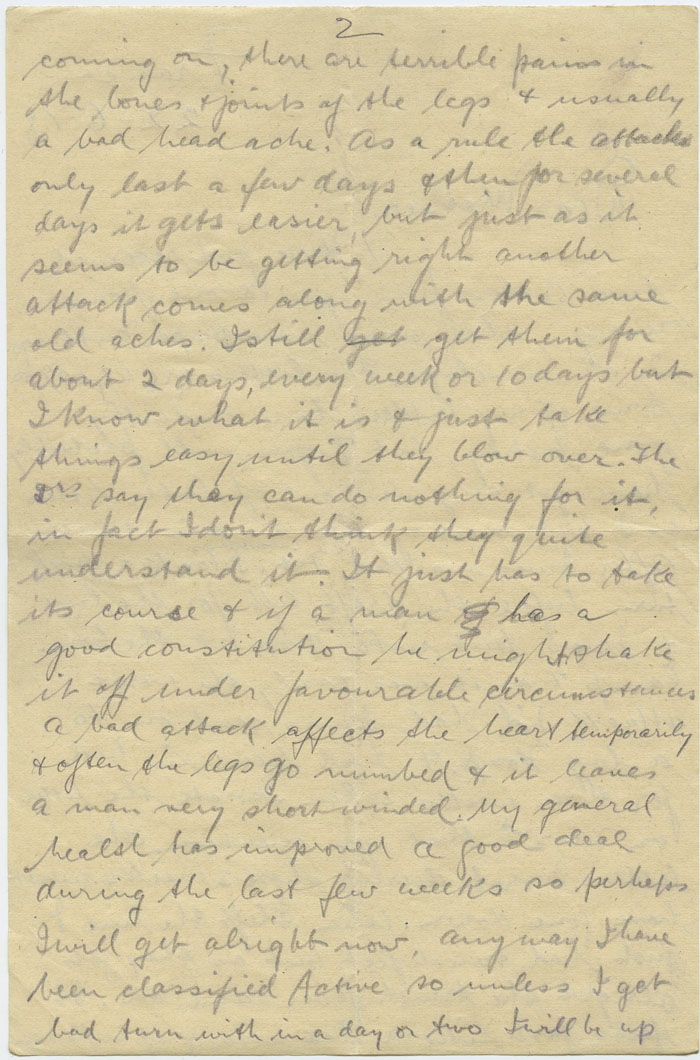 2
coming on, there are terrible pains in
the bones & joints of the legs & usually
a bad head ache. As a rule the attacks
only last a few days & then for several
days it gets easier, but just as it
seems to be getting right another
attack comes along with the same
old aches. I still get get them for
about 2 days, every week or 10 days but
I know what it is & just take
things easy until they blow over. The
Drs say they can do nothing for it,
in fact I don't think they quite
understand it. It just has to take
its course & if a man has a
good constitution he might shake
it off under favourable circumstances
a bad attack affects the heart temporarily
& often the legs go numbed & it leaves
a man very short winded. My general
health has improved a good deal
during the last few weeks so perhaps
I will get alright now, anyway I have
been classified Active so unless I get
bad turn with in a day or two I will be up